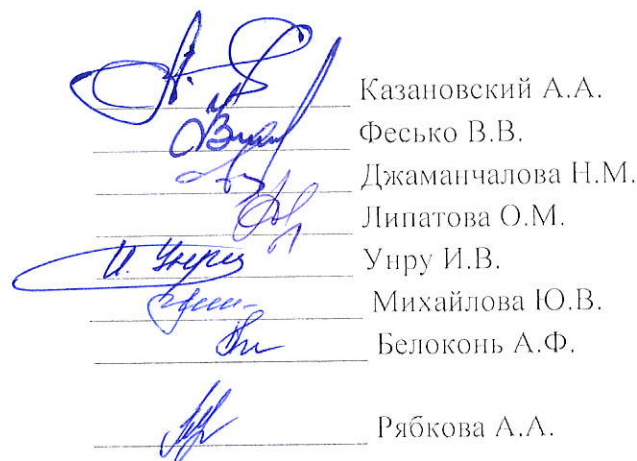 Казановский А.А.
Фесько В.В.
Джаманчалова Н.М.
Липатова О.М.
И. Унру Унру И.В.
Михайлова Ю.В.
Белоконь А.Ф.
Рябкова А.А.